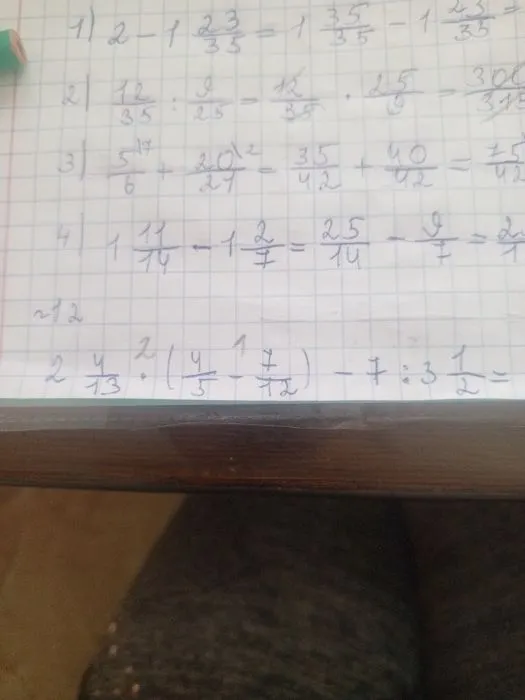 1) 2 - 1 23/35 = 1 35/35 - 1 23/35 =
2) 12/35 : 9/25 = 12/35 · 25/9 = 300/315
3) 5/6 \7 + 20/21 \2 = 35/42 + 40/42 = 75/42
4) 1 11/14 - 1 2/7 = 25/14 - 9/7 =
~12
2 4/13 ·2 (4/5 -1 7/12) - 7 : 3 1/2 =